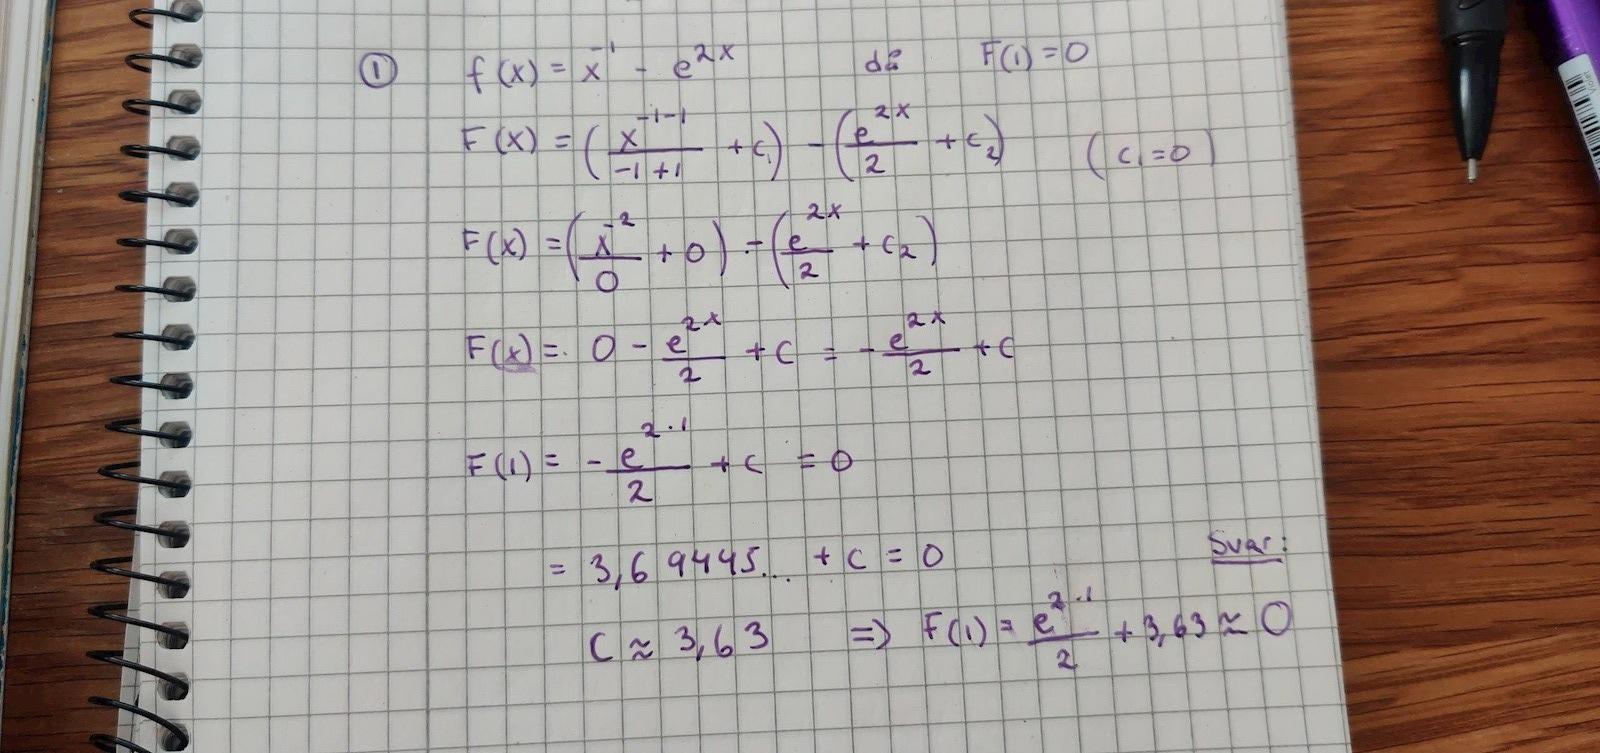 ① f(x) = x⁻¹ - e^(2x) då F(1) = 0
F(x) = (x^(-1-1)/(-1+1) + C₁) - (e^(2x)/2 + C₂) (C₁ = 0)
F(x) = (x⁻²/0 + 0) - (e^(2x)/2 + C₂)
F(x) = 0 - e^(2x)/2 + C = -e^(2x)/2 + C
F(1) = -e^(2·1)/2 + C = 0
= 3,69445... + C = 0
Svar:
C ≈ 3,63 => F(1) = e^(2·1)/2 + 3,63 ≈ 0